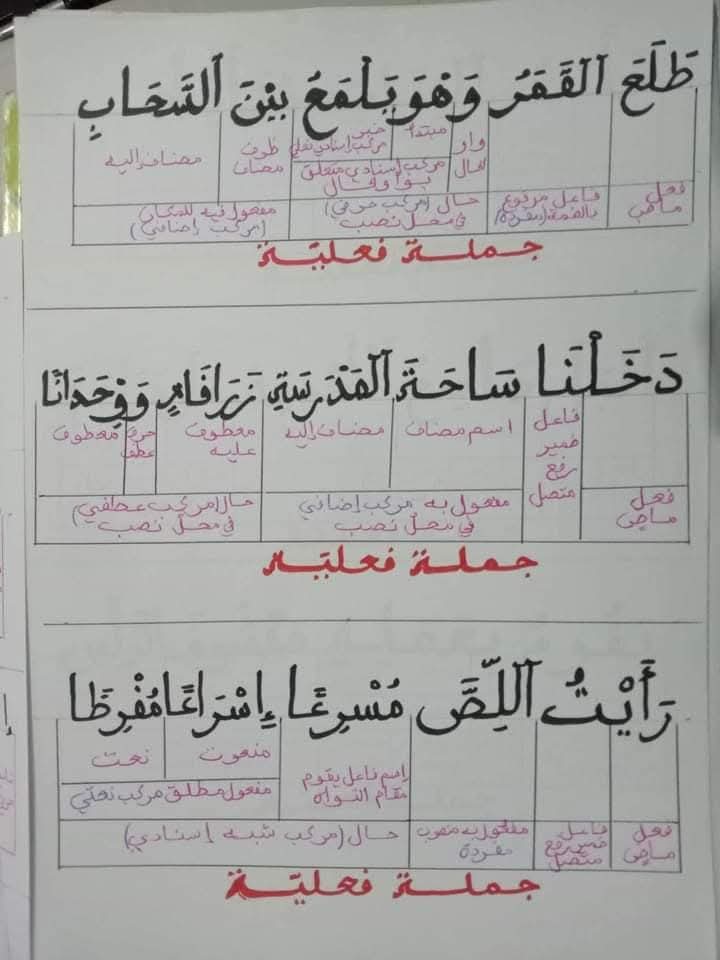 طَلَعَ القَمَرُ وَهْوَ يَلْمَعُ بَيْنَ السَّحَابِ
واو الحال
مبتدأ
خبر مركب إسنادي فعلي
مركب إسنادي متعلق بواو الحال
ظرف مضاف
مضاف إليه
فعل ماض
فاعل مرفوع بالضمة (مفردة)
حال (مركب حرفي) في محل نصب
مفعول فيه للمكان (مركب إضافي)
جملة فعليّة
دَخَلْنَا سَاحَةَ المَدْرَسَةِ زَرَافَاتٍ وَوِحْدَانًا
فاعل ضمير رفع متصل
اسم مضاف
مضاف إليه
معطوف عليه
حرف عطف
معطوف
فعل ماض
مفعول به مركب إضافي في محل نصب
حال (مركب عطفي) في محل نصب
جملة فعليّة
رَأَيْتُ اللِّصَّ مُسْرِعًا إِسْرَاعًا مُفْرِطًا
إسم فاعل يقوم مقام النواة
منعوت
نعت
مفعول مطلق مركب نعتي
فعل ماض
فاعل ضمير رفع متصل
مفعول به منصوب مفردة
حال (مركب شبه إسنادي)
جملة فعليّة